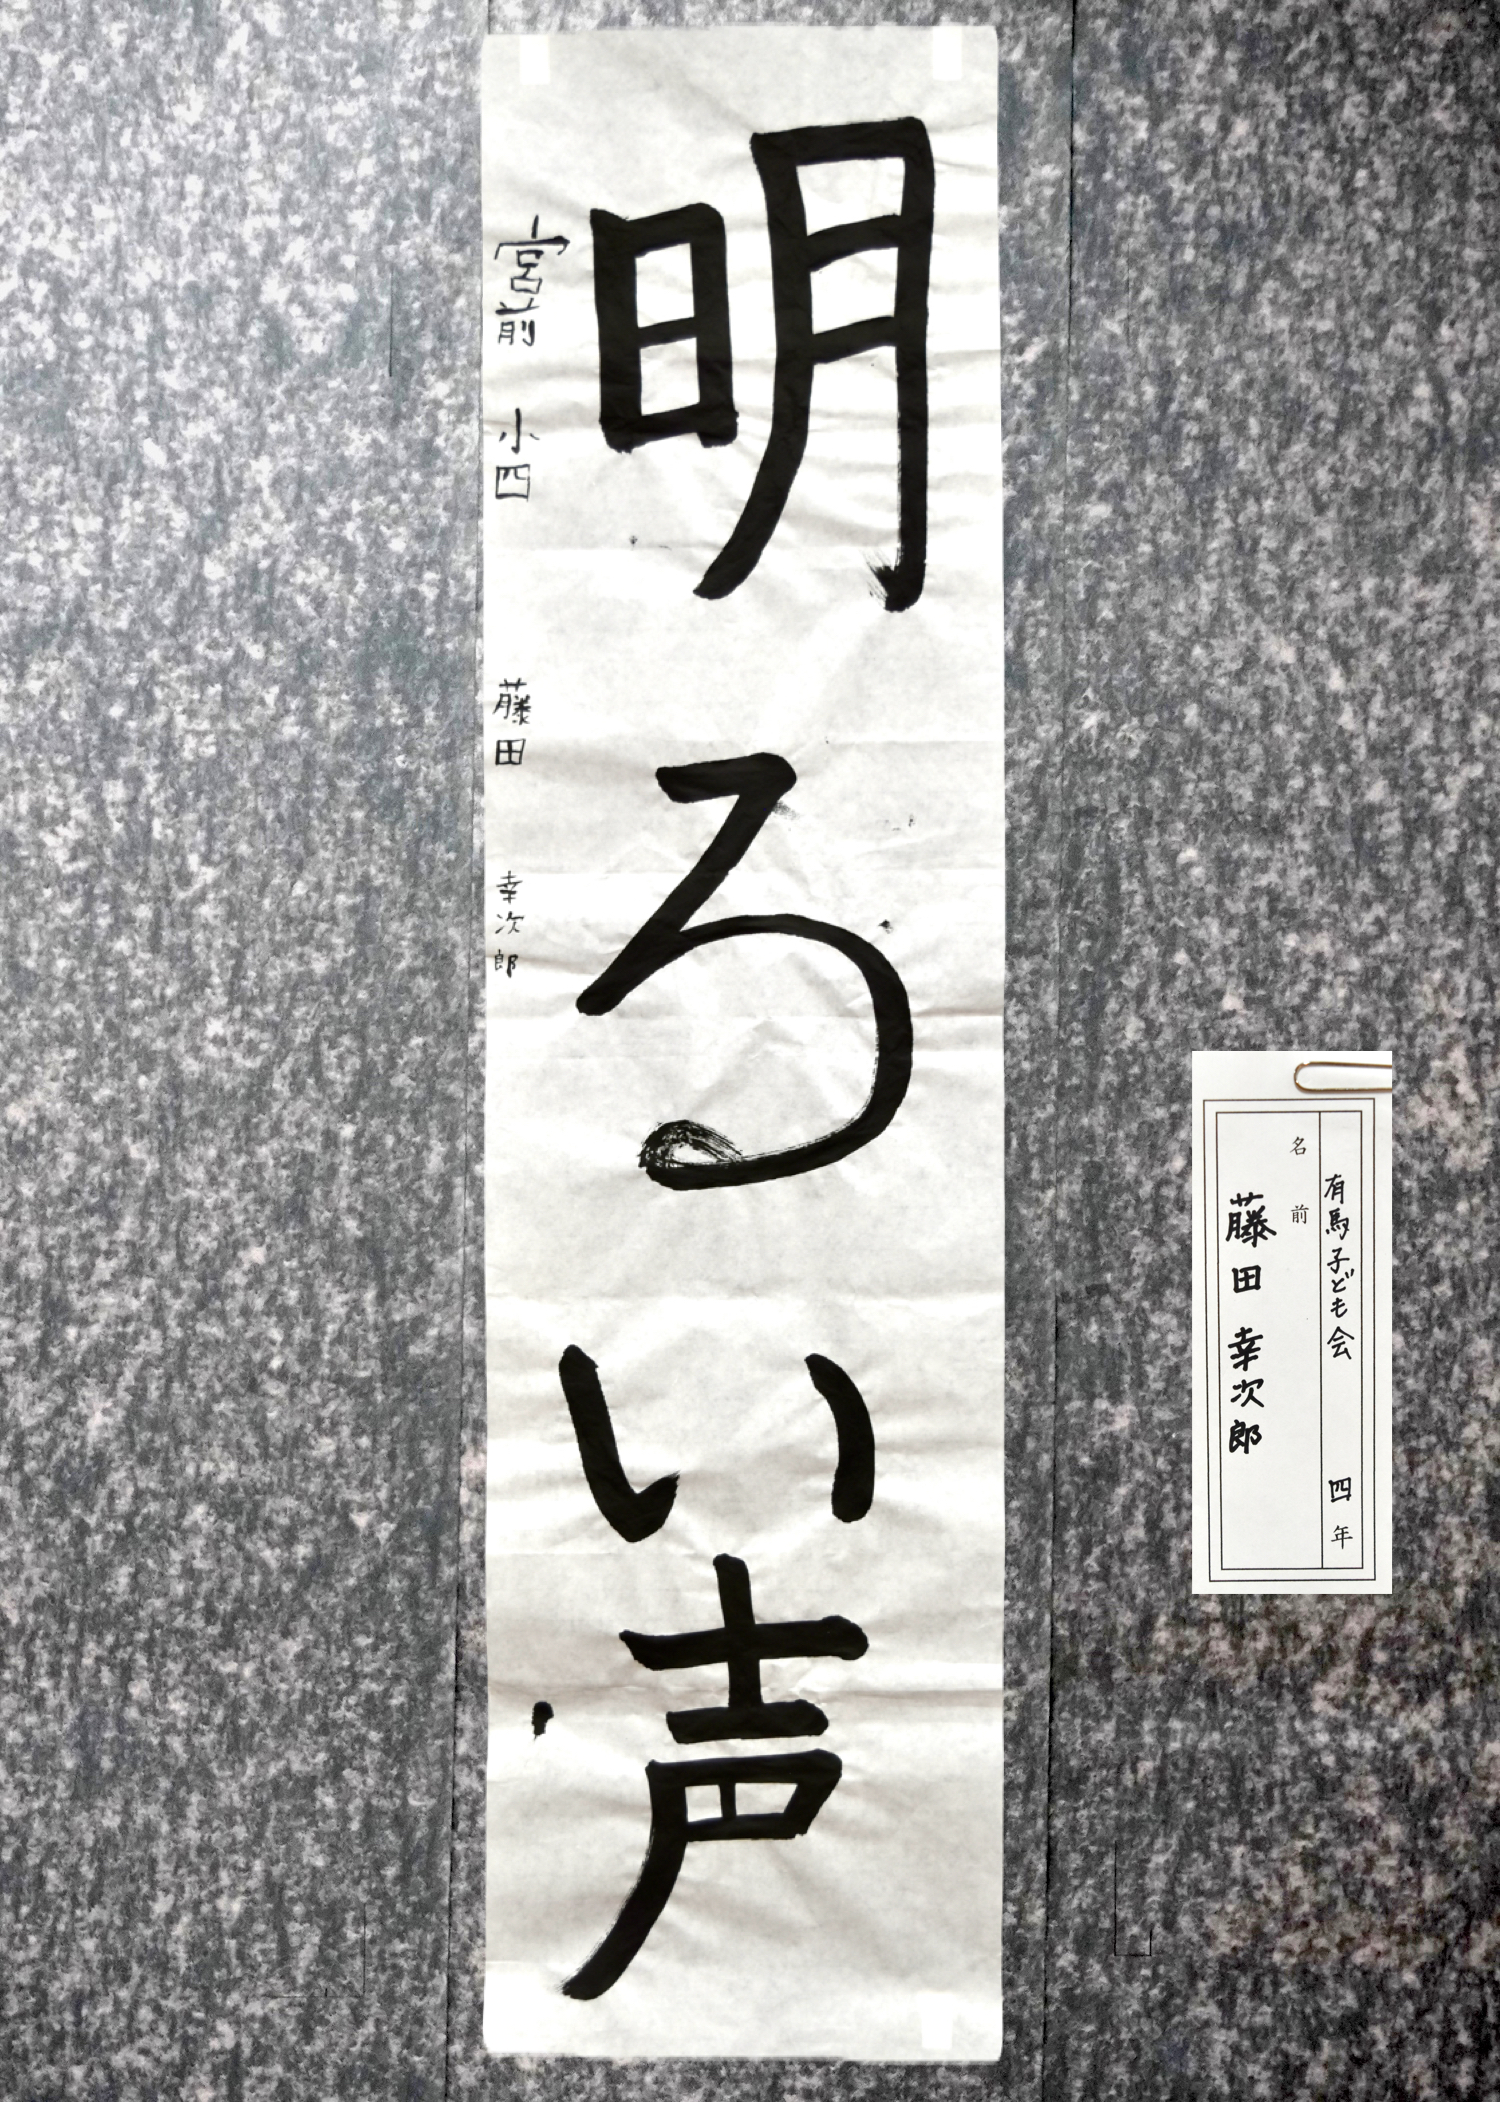 明るい声
宮前 小四 藤田 幸次郎
有馬子ども会 四年
名前
藤田 幸次郎